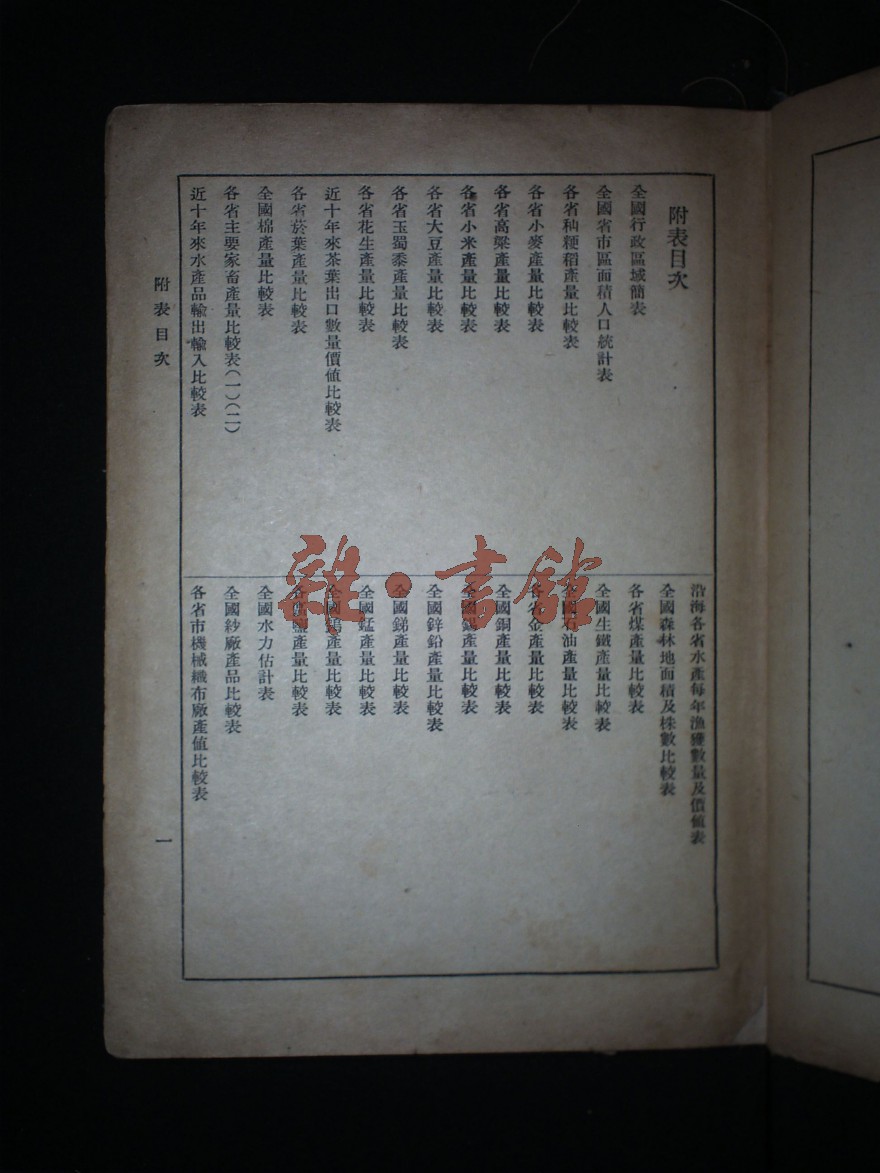 附表目次
全國行政區域簡表
全國省市區面積人口統計表
各省秈粳稻產量比較表
各省小麥產量比較表
各省高粱產量比較表
各省小米產量比較表
各省大豆產量比較表
各省玉蜀黍產量比較表
各省花生產量比較表
近十年來茶葉出口數量價值比較表
各省菸葉產量比較表
全國棉產量比較表
各省主要家畜產量比較表(一)(二)
近十年來水產品輸出輸入比較表
沿海各省水產每年漁獲數量及價值表
全國森林地面積及株數比較表
各省煤產量比較表
全國生鐵產量比較表
全國石油產量比較表
各省金產量比較表
全國銅產量比較表
全國錫產量比較表
全國鋅鉛產量比較表
全國銻產量比較表
全國錳產量比較表
全國鎢產量比較表
各區鹽產量比較表
全國水力估計表
全國紗廠產品比較表
各省市機械織布廠產值比較表
附表目次
一
雜·書館